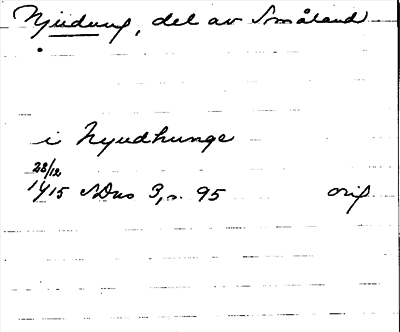 Njudung, del av Småland
i Nyudhunge
28/12
1415 SDns 3, s. 95 orig